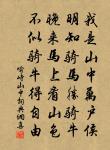 我是山中萬戶侯
明知騎馬勝騎牛
晚來馬上看山色
不似騎牛得自由
喻峙山中和共綱集